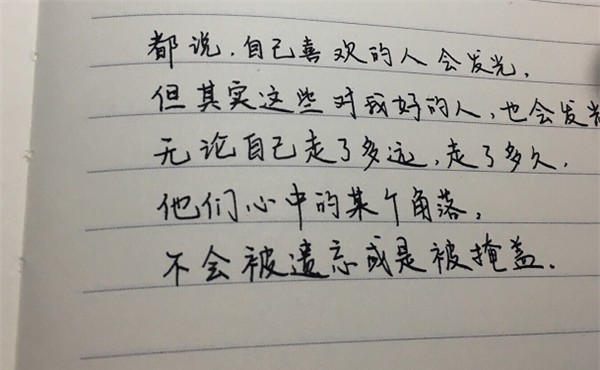 都说，自己喜欢的人会发光，
但其实这些对我好的人，也会发光
无论自己走了多远，走了多久，
他们心中的某个角落，
不会被遗忘或是被掩盖．